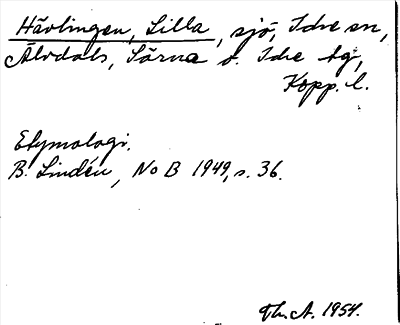 Hävlingen, Lilla, sjö, Idre sn,
Älvdals, Särna o. Idre tg,
Kopp. l.
Etymologi.
B. Lindén, NoB 1949, s. 36.
Th. A. 1954.